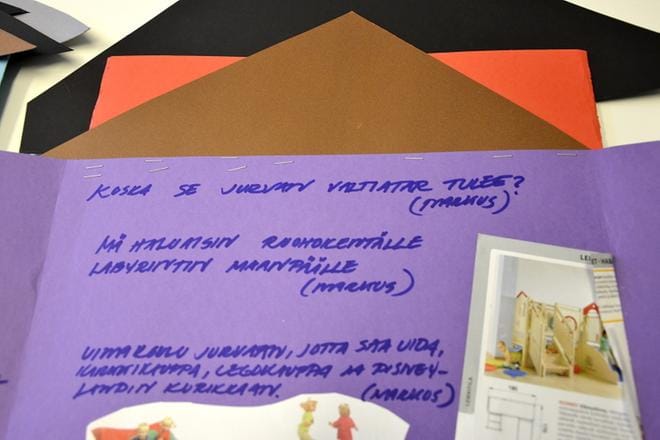 KOSKA SE JURVAN VALTIATAR TULEE?
(MARKUS)
MÄ HALUAISIN RUOHOKENTÄLLE
LABYRINTIN MAANPÄÄLLE
(MARKUS)
UIMAKOULU JURVAAN, JOTTA SAA UIDA,
KARKKIKAUPPA, LEGOKAUPPA JA DISNEY-
LANDIN KURIKKAAN. (MARKUS)